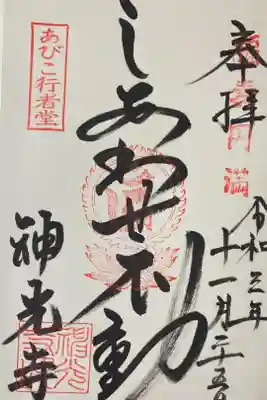 奉拝
令和三年
十一月二十五日
しあわせ不動
あびこ行者堂
神光寺